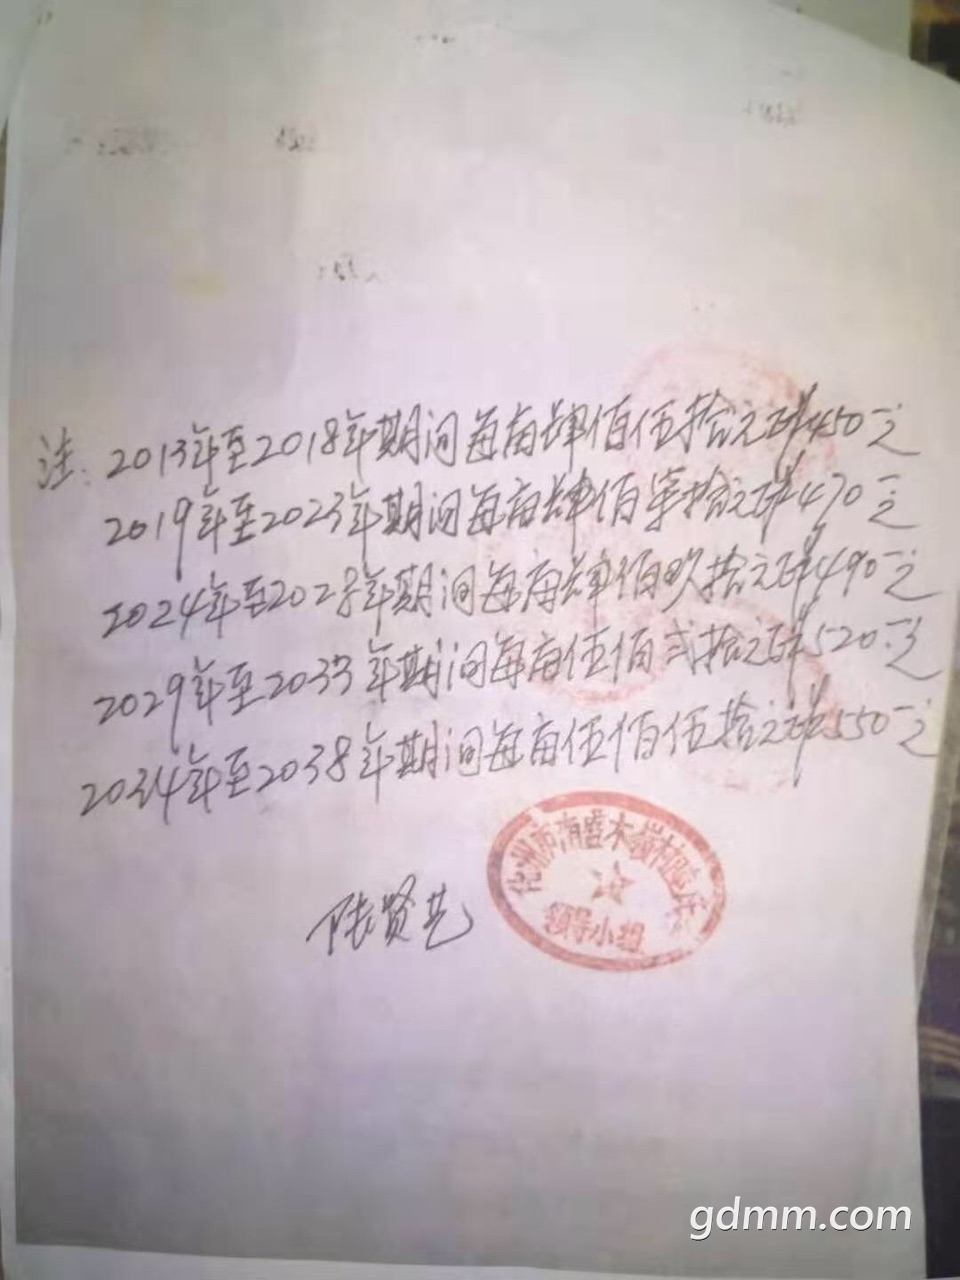 注：2013年至2018年期间每亩肆佰伍拾元正¥450元
2019年至2023年期间每亩肆佰柒拾元正¥470元
2024年至2028年期间每亩肆佰玖拾元正¥490元
2029年至2033年期间每亩伍佰弍拾元正¥520元
2034年至2038年期间每亩伍佰伍拾元正¥550元
陆贤艺
化州市
木
村
领导小组
gdmm.com